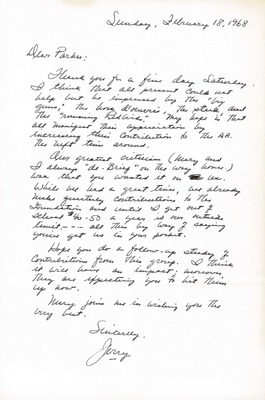 Sunday, February 18, 1968
Dear Parker:
Thank you for a fine day Saturday.
I think that all present could not
help but be impressed by the "big
guns," the hors d'oeuvres, the steak and
the "running Redskins." My hope is that
all manifest their appreciation by
increasing their contribution to the AA.
the next time around.
Our greatest criticism (Mary and
I always "de-Brief" on the way home)
was that you wasted it on us.
While we had a great time, we already
make quarterly contributions to the
Foundation and until I get out of
school $40-50 a year is our outside
limit, --- all this by way of saying
you've got us in your pocket.
Hope you do a follow-up study of
contributions from this group. I think
it will have an impact; moreover,
they are expecting you to hit them
up now.
Mary joins me in wishing you the
very best.
Sincerely,
Jerry